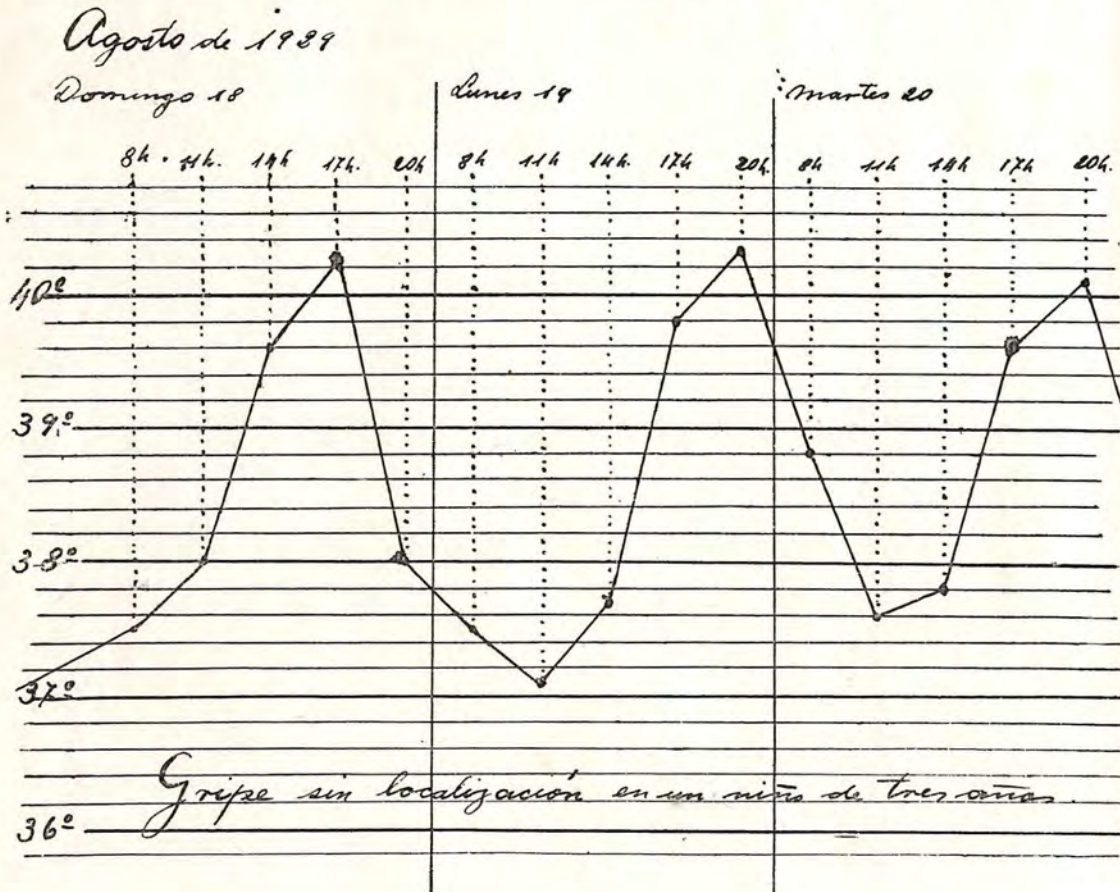 Agosto de 1929
Domingo 18
Lunes 19
Martes 20
8h. 11h. 14h 17h. 20h 8h 11h 14h. 17h 20h. 8h 11h 14h 17h 20h.
40º
39º
38º
37º
Gripe sin localización en un niño de tres años.
36º